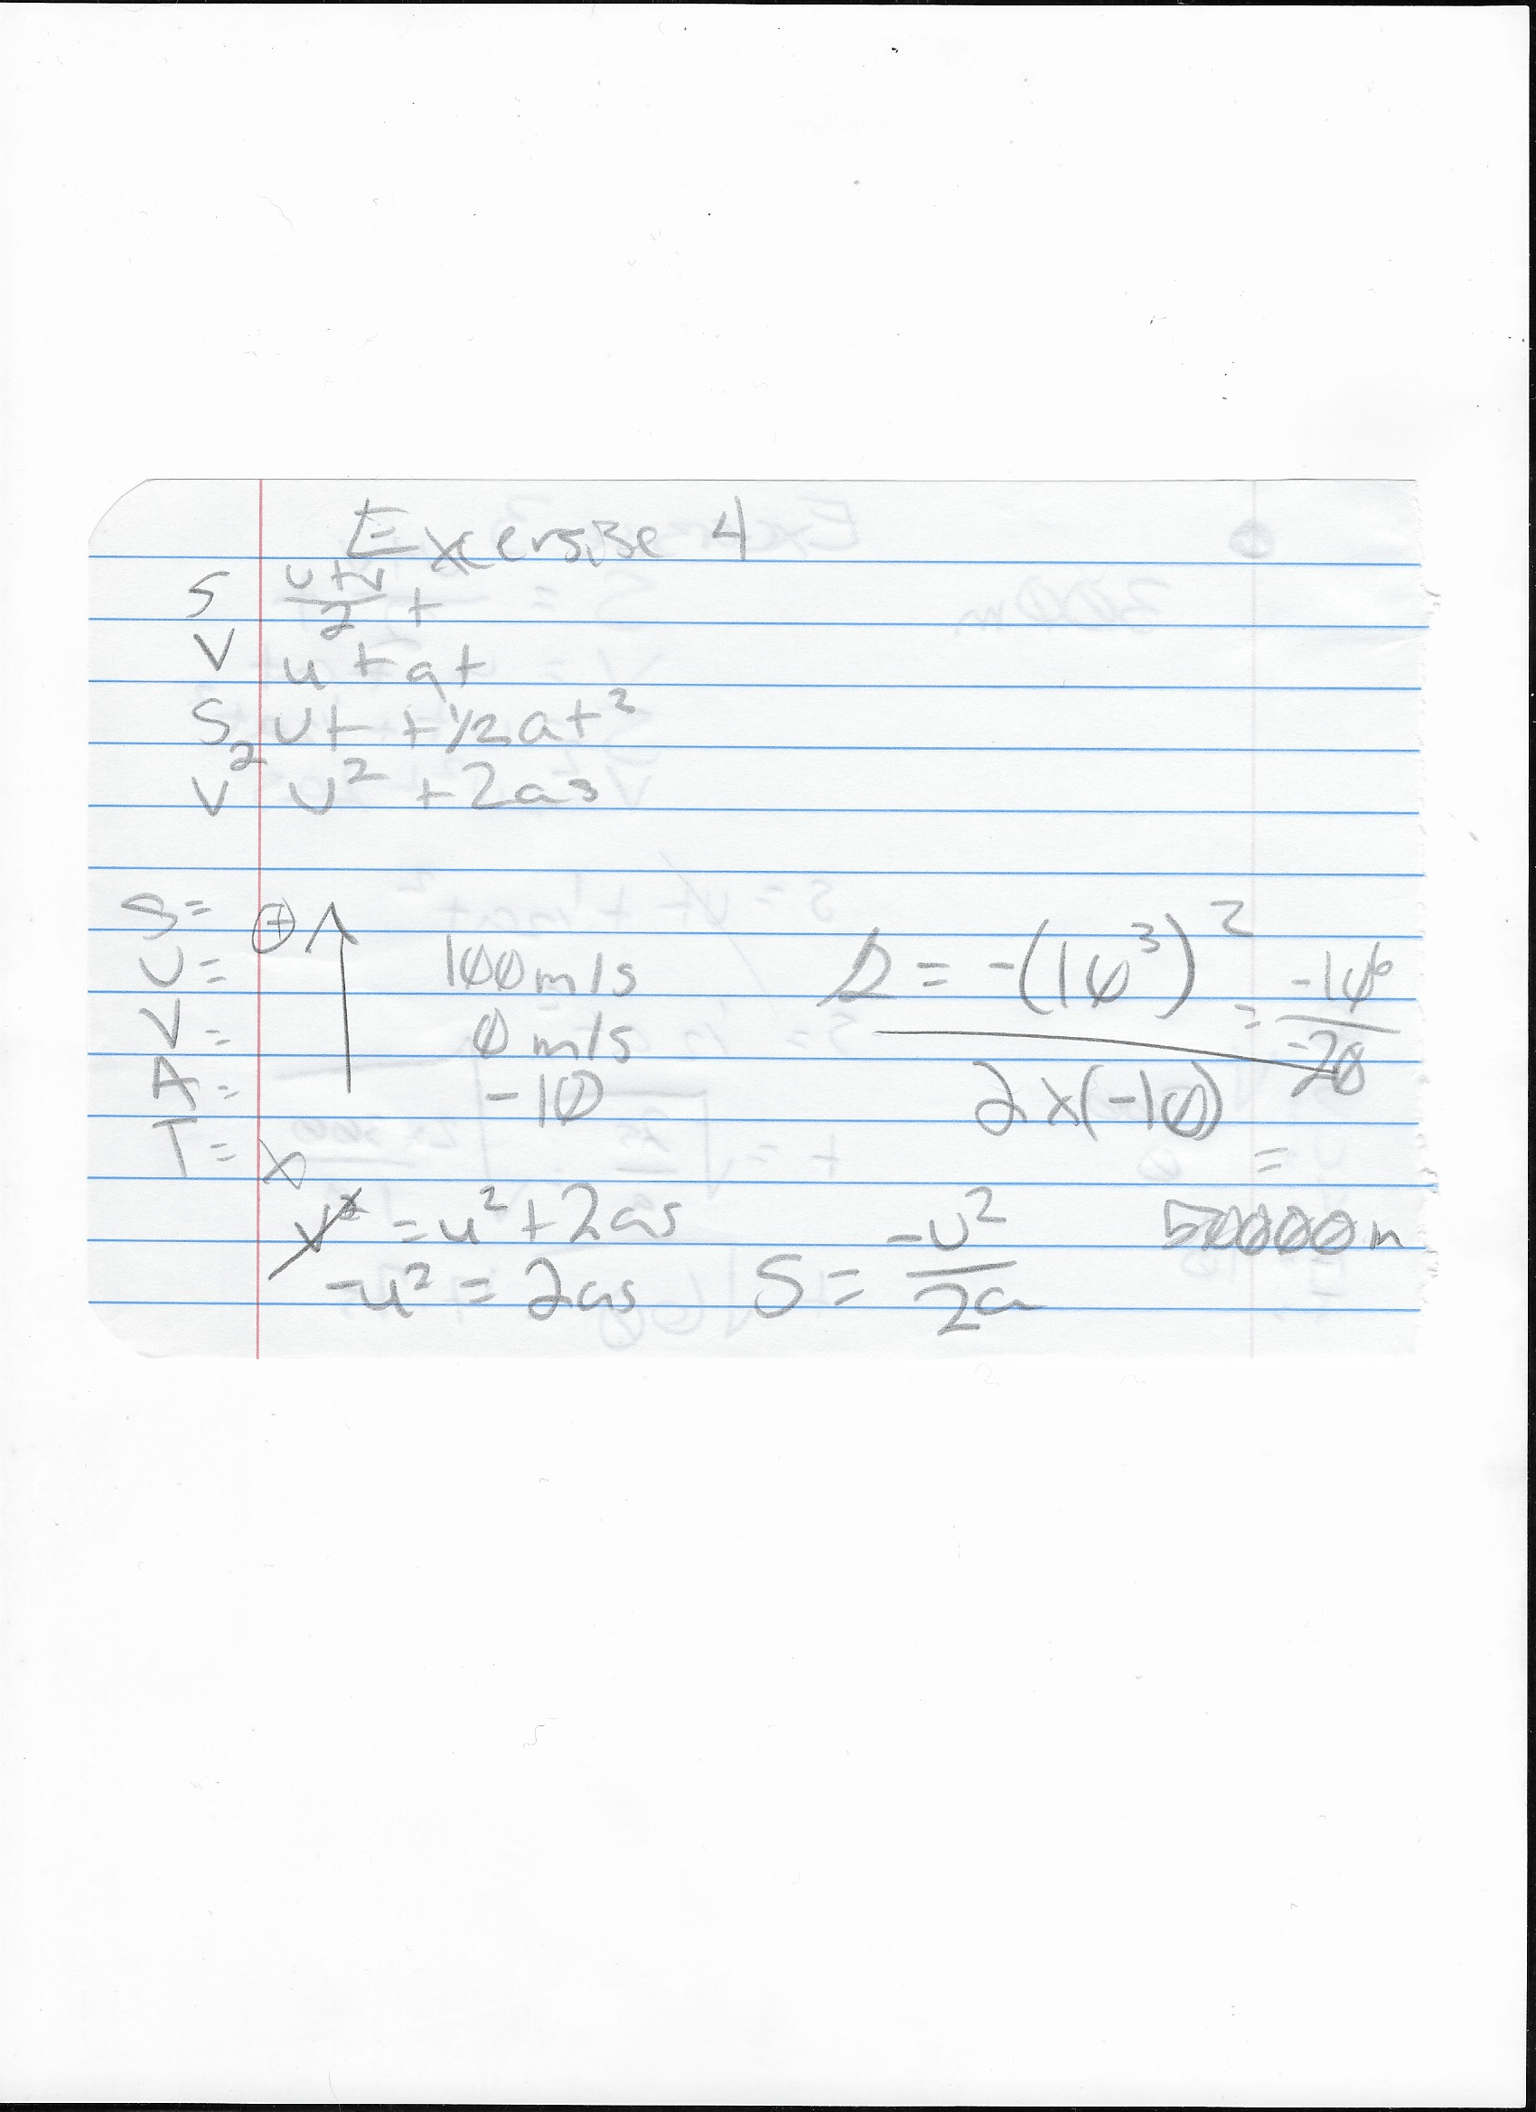 Excersise 4
S u+v/2 t
V u + at
S ut + 1/2at²
V² u² + 2as
S= ⊕
U= 100m/s
V= 0 m/s
A= -10
T= x
v² = u² + 2as
-u² = 2as
S = -u²/2a
s = -(10³)²/2x(-10) = -10⁶/-20
=
50000m